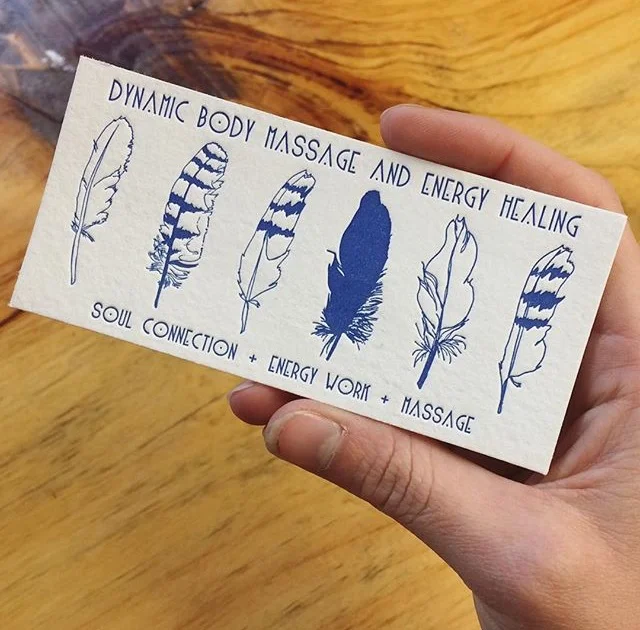 DYNAMIC BODY MASSAGE AND ENERGY HEALING
SOUL CONNECTION + ENERGY WORK + MASSAGE